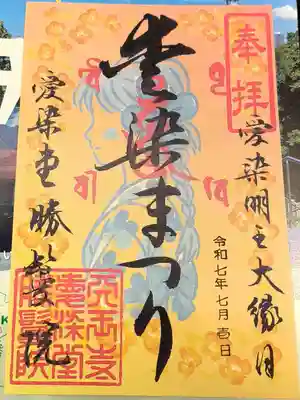 奉拝
愛染明王大縁日
令和七年七月壱日
愛染まつり
愛染堂勝鬘院